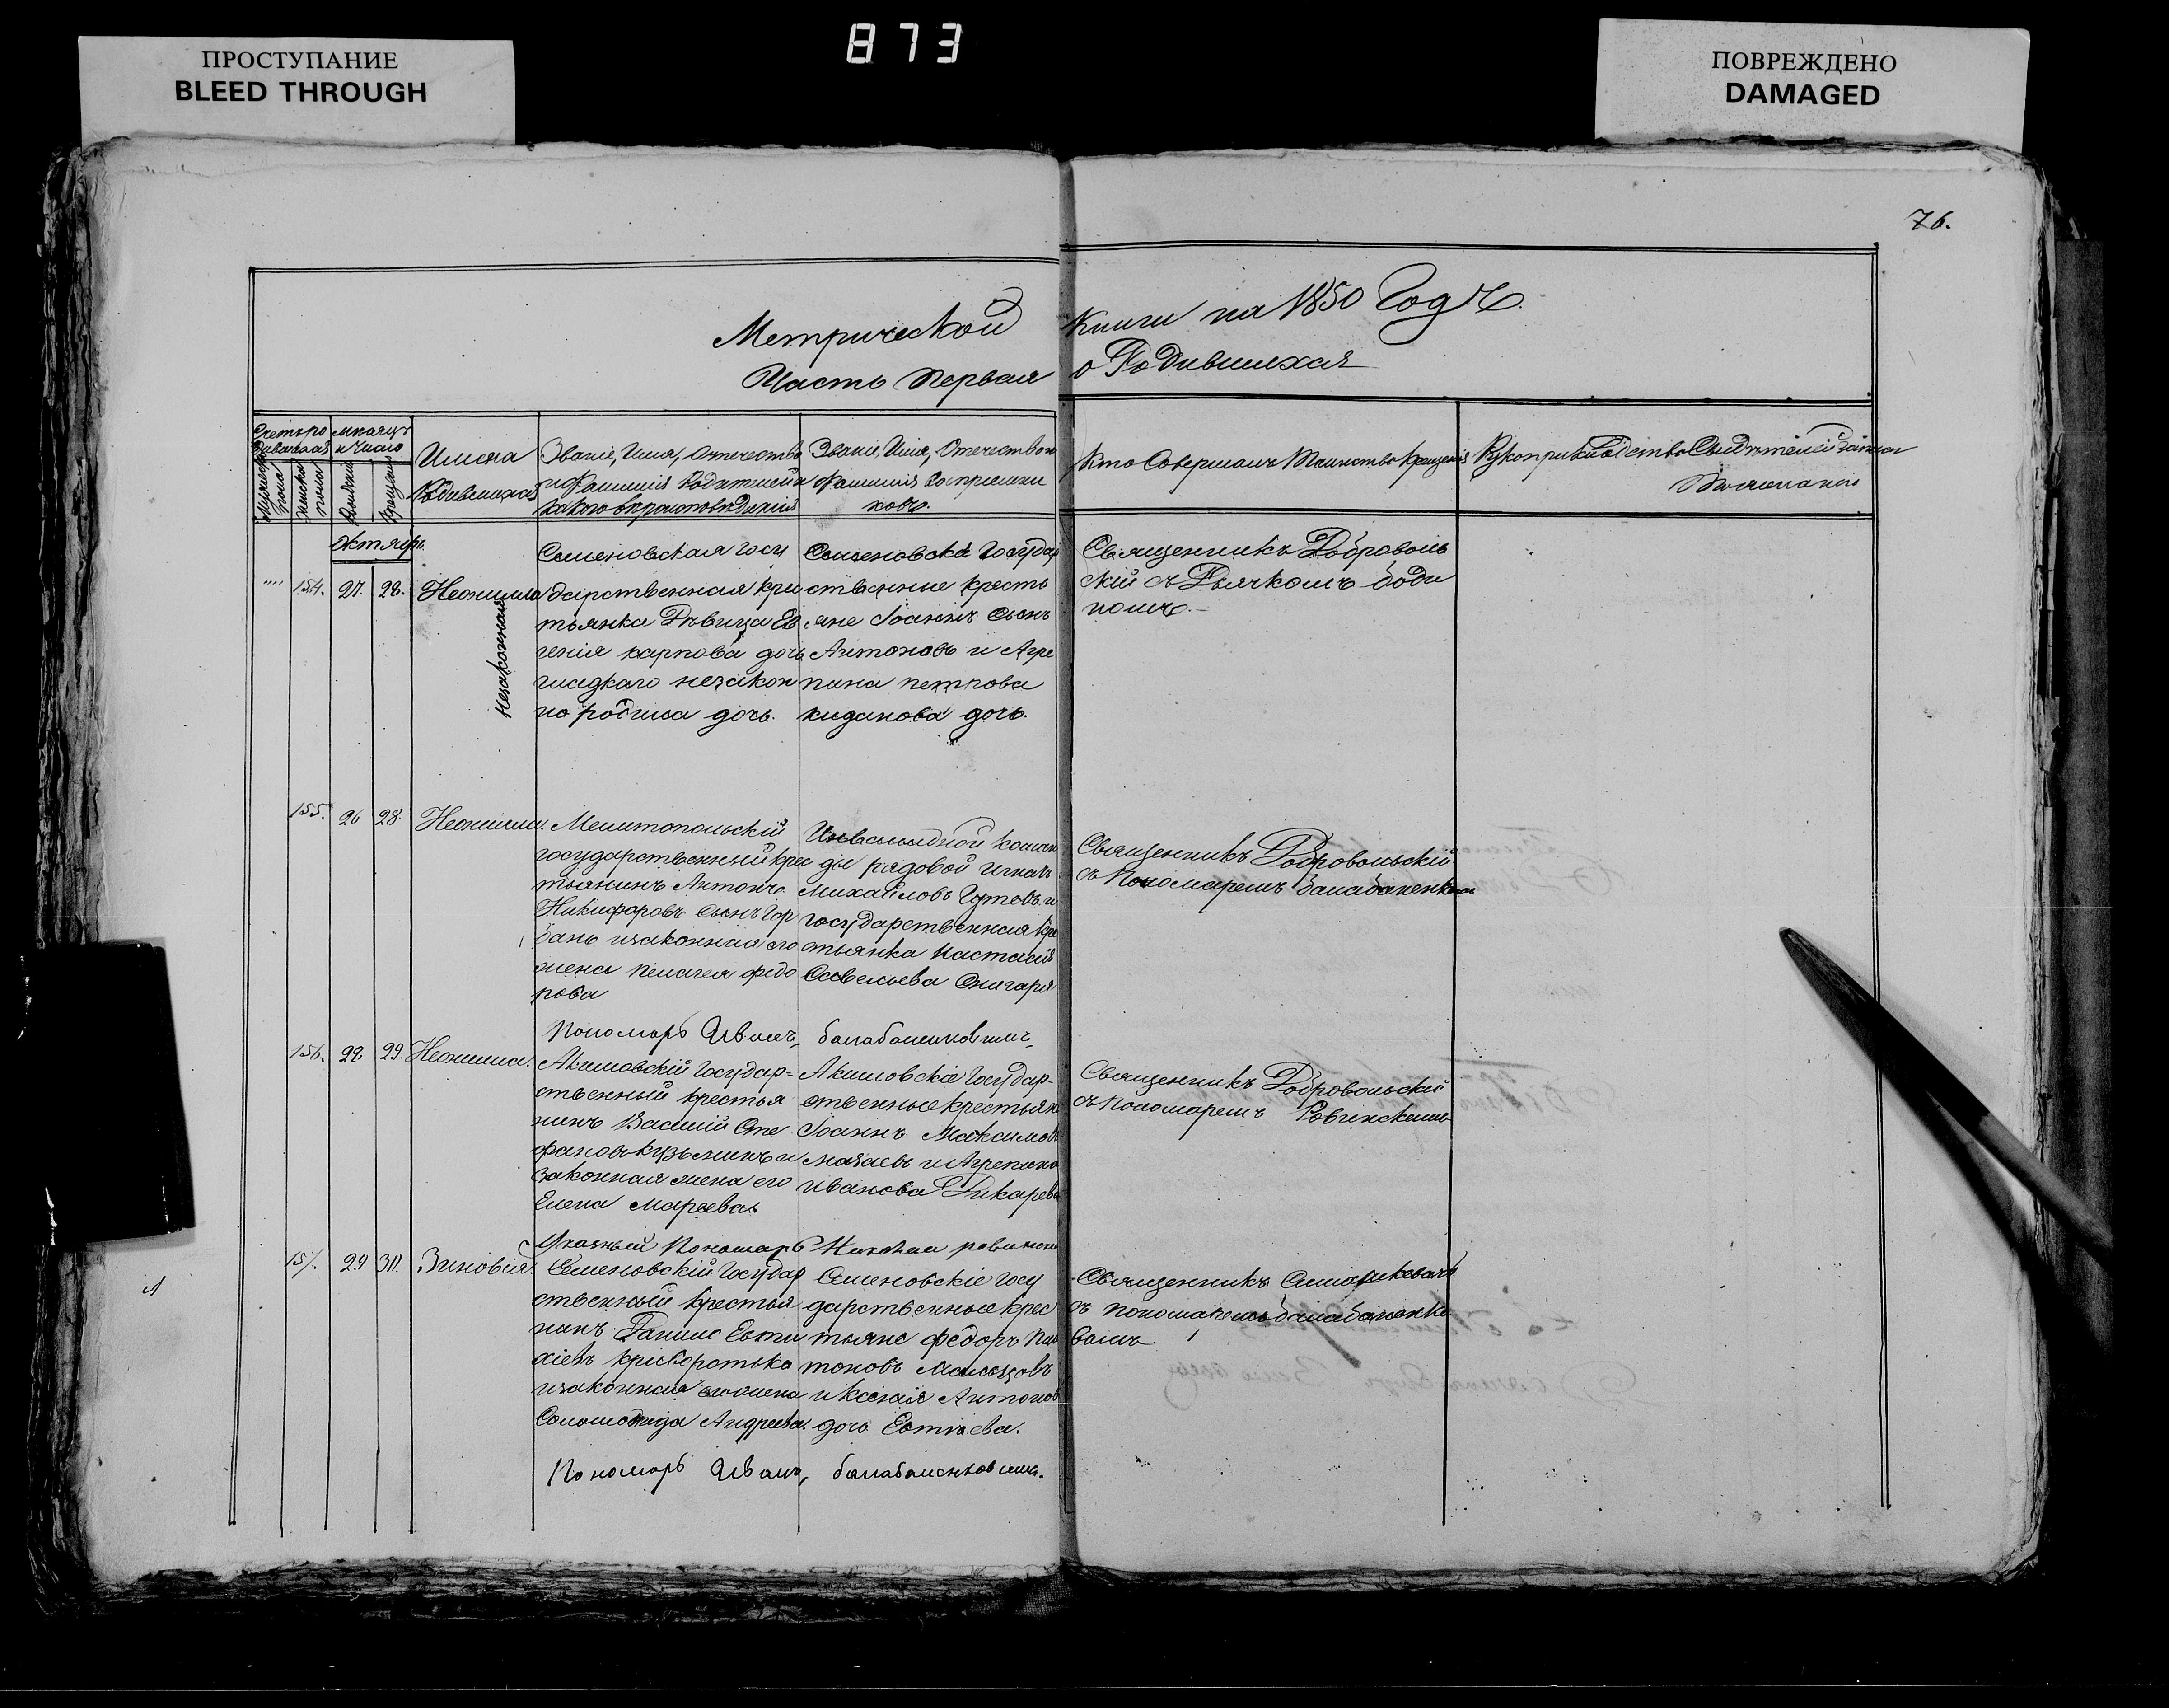 873
ПРОСТУПАНИЕ
BLEED THROUGH
ПОВРЕЖДЕНО
DAMAGED
76.
Метрической Книги на 1850 Годъ.
Часть Первая о Родившихся
Счетъ ро
дившихся
Мужеска
пола
Женска
пола
месяцъ
и Число
Рожденія
Крещенія
Имена
Родившихся
Званіе, Имя, Отечество
и Фамилія Родителей и
какого вѣроисповѣданія
Званіе, Имя, Отечество и
Фамилія Воспріемни
ковъ.
Кто Совершалъ Таинство Крещенія
Рукоприкладство Свидѣтелей записи
по желанію
Октябрь
"" 154. 27. 28. Неонилла
незаконная
Семеновская госу
дарственная крес
тьянка Дѣвица Ев
генія карпова дочь
гладкаго незакон
но родила дочь.
Семеновскіе Государ
ственные кресть
яне Іоаннъ Сынъ
Антоновъ и Агре
пина петрова
киданова дочь.
Священникъ Доброволь
скій съ Дьячкомъ
155. 26 28 Неонилла.
Мелитопольскій
государственный крес
тьянинъ Антонъ
Никифоровъ Сынъ Гор
бань изаконная его
жена Пелагея федо
рова
Инвалидной коман
ды рядовой Игнатъ
Михайловъ и
государственная кре
стьянка Настасія
Савельева
Священникъ Добровольскій
съ Пономаремъ балабаненкомъ
Пономарь Иванъ балабаненковимъ
156. 28 29. Неонилла.
Акимовскій Государ=
ственный крестья
нинъ Василій Сте
фановъ кузьминъ и
законная жена его
Елена Мареева
Акимовскіе Государ-
ственные крестьян
Іоаннъ Максимовъ
и Агрепина
иванова Дикарева
Священникъ Добровольскій
съ пономаремъ Ровинскимъ
Указный Пономарь Николай ровинскій
157. 29 30. Зиновія.
Семеновскій Государ
ственный крестья
нинъ Данило Евти
хіевъ
изаконная его жена
Соломонида Андреева.
Семеновскіе госу
дарственные крес
тьяне федоръ Пла
тоновъ Мальцовъ
и Ксенія Антонов
дочь Евтіева.
Священникъ
съ пономаремъ балабаненко
вымъ
Пономарь Иванъ, балабаненковимъ.